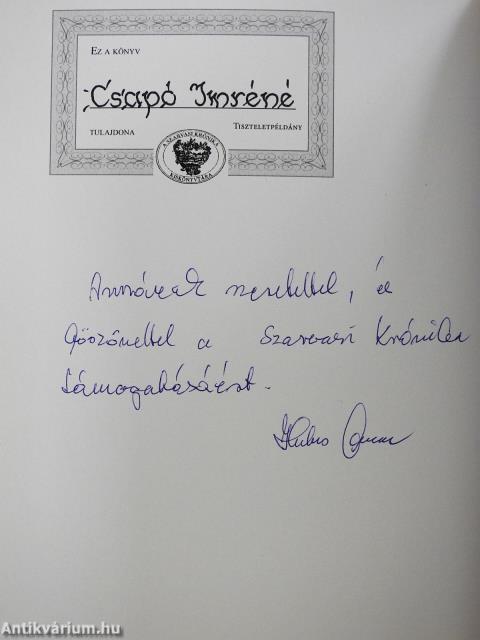 EZ A KÖNYV
Csapó Imréné
TULAJDONA TISZTELETPÉLDÁNY
A SZARVASI KRÓNIKA
KISKÖNYVTÁRA
szeretettel, és
köszönettel a Szarvasi Krónika
támogatásáért.
Antikvárium.hu